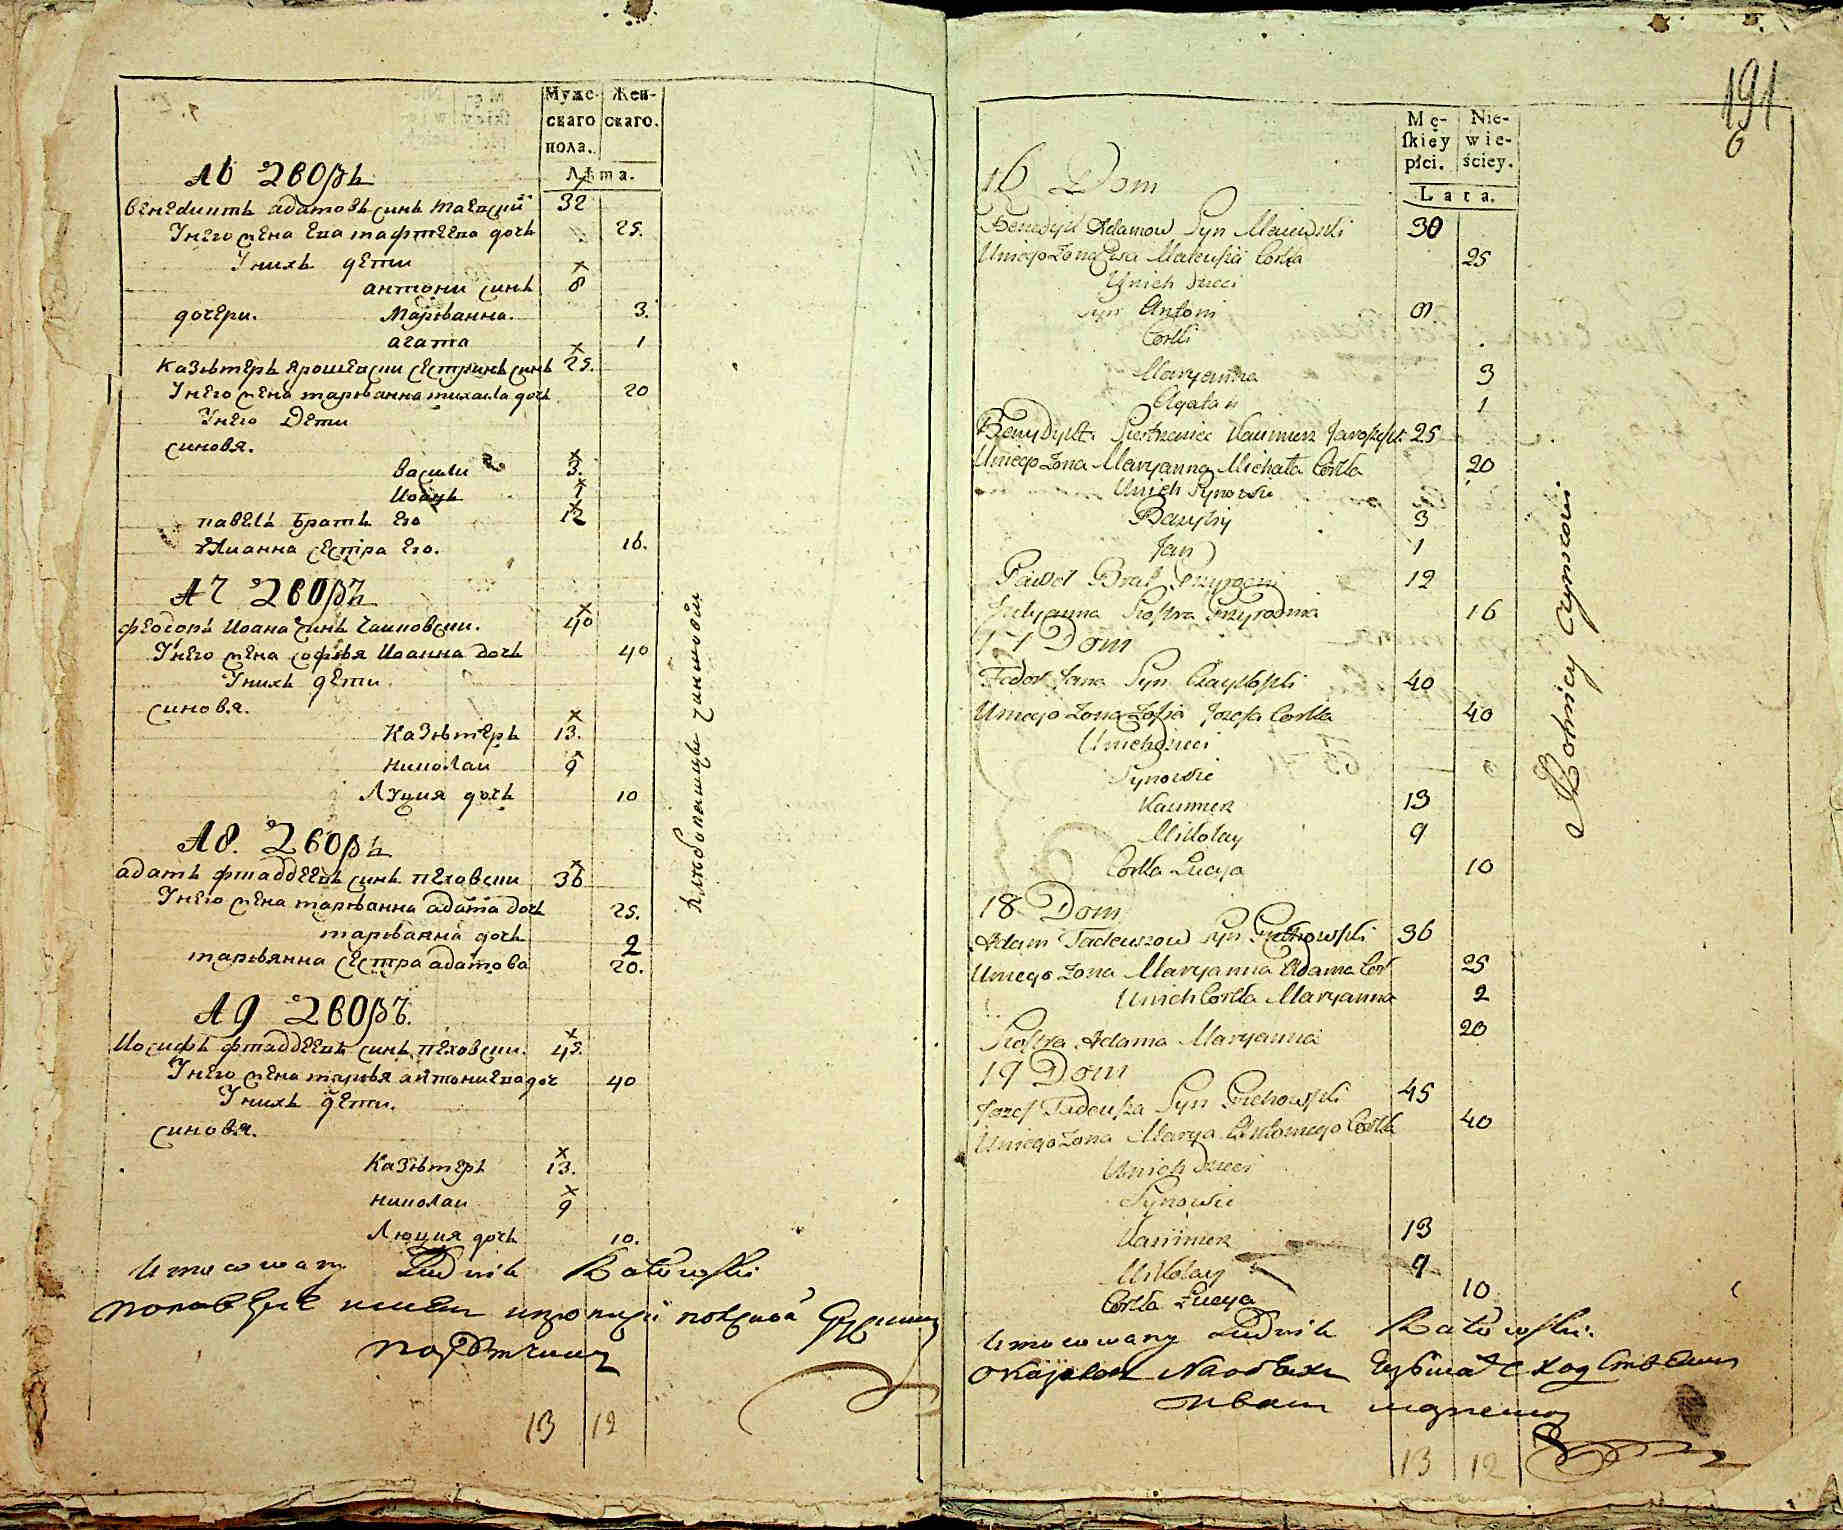 Муже- Жен-
скаго скаго.
пола.
Лѣта.
16 дворъ
венедиктъ адамовъ синъ маевский 32
Унего жена ева матфѣева дочь 25.
Унихъ дети
антони синъ 8
дочери. Марьянна. 3.
агата 1
Казѣмеръ ярошевски сестринъ синъ 25.
Унего жена марьянна михаила дочь 20
Унего дети
синовя.
васили 3.
Иоанъ 1
павелъ братъ его 12
Улианна сестра его. 16.
17 дворъ
феодоръ Иоана синъ чаиковски. 40
Унего жена софѣя Иоанна дочь 40
Унихъ дети.
синовя.
Казѣмеръ 13.
николаи 9
Луция дочь 10
18. дворъ
адамъ фтаддеевъ синъ пеховски 36
Унего жена марьанна адама дочь 25.
марьанна дочь 2
марьянна сестра адамова 20.
19 дворъ.
Иосифъ фтаддеевъ синъ пеховски. 45.
Унего жена марья антониева доч 40
Унихъ дети.
синовя.
Казѣмеръ 13.
николаи 9
Люция дочь 10.
Umocowany Ludwik Kałowski
13 12
хлѣбопашцы чиншови
191
6
Mę- Nie-
ſkiey wie-
płci. ściey.
Lata.
16 Dom
Benedykt Adamow Syn Maiewski 30
Uniego Zona Ewa Mateusza Corka 25
Unich dzieci
Syn Antoni 8
Corki
Maryanna 3
Agata 1
Benedykta Siestrzeniec Kazimierz Jaroszews: 25
Uniego Zona Maryanna Michała Corka 20
Unich Synowie
Bazyli 3
Jan 1
Paweł Brat Przyrodni 12
Julyanna Siostra Przyrodnia 16
17 Dom
Fedor Jana Syn Czaykoski 40
Uniego Zona Zofia Jozefa Corka 40
Unich dzieci
Synowie
Kazimierz 13
Mikołay 9
Corka Lucya 10
18 Dom
Adam Tadeuszow Syn Piechowski 36
Uniego Zona Maryanna Adama Cor 25
Unich Corka Maryanna 2
Siostra Adama Maryanna 20
19 Dom
Jozef Tadeusza Syn Piechowski 45
Uniego Zona Marya Antoniego Corka 40
Unich dzieci
Synowie
Kazimierz 13
Mikołay 9
Corka Lucya 10
Umocowany Ludwik Kałowski.
13 12
Rolnicy Czynszowi